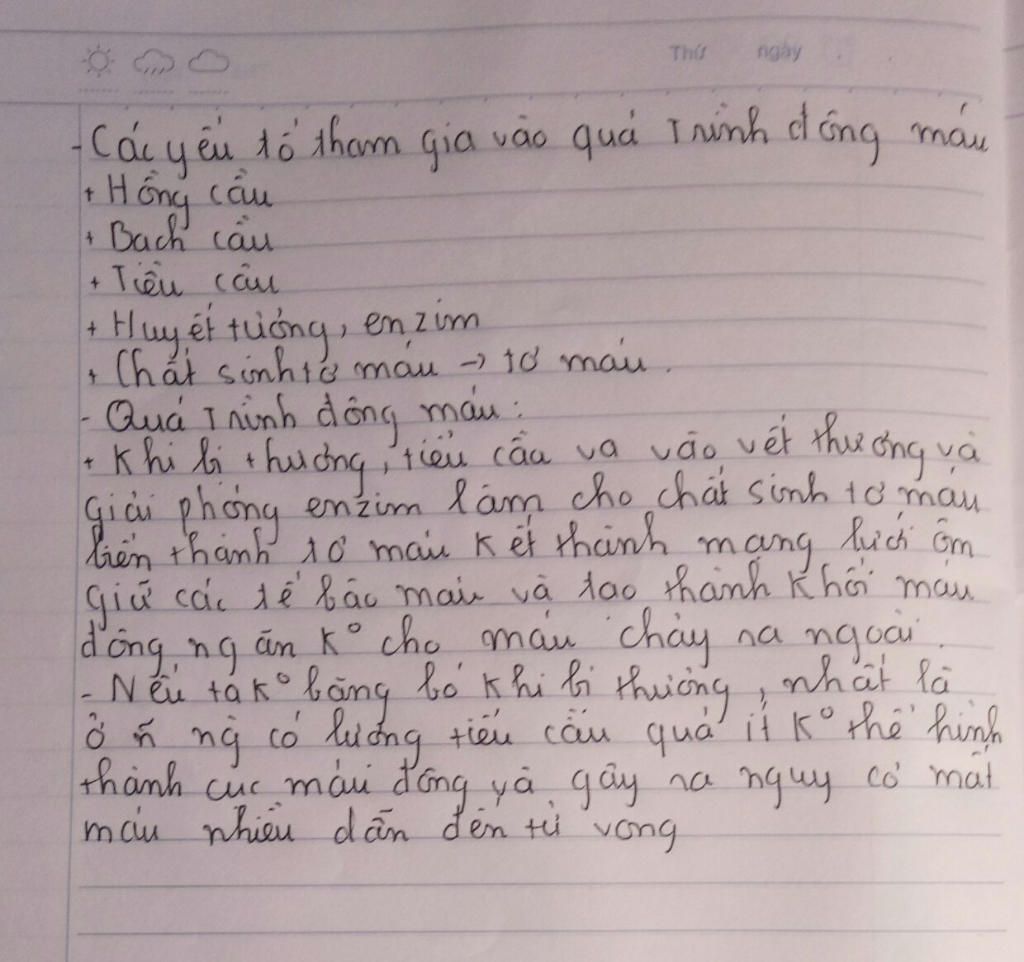 Thứ ngày
- Các yếu tố tham gia vào quá trình đông máu
+ Hồng cầu
+ Bạch cầu
+ Tiểu cầu
+ Huyết tương, enzim
+ Chất sinh tơ máu → tơ máu.
- Quá trình đông máu:
+ Khi bị thương, tiểu cầu va vào vết thương và
giải phóng enzim làm cho chất sinh tơ máu
biến thành tơ máu kết thành mạng lưới ôm
giữ các tế bào máu và tạo thành khối máu
đông ngăn k° cho máu chảy ra ngoài.
- Nếu ta k° băng bó khi bị thương, nhất là
ở ñ ng có lượng tiểu cầu quá ít k° thể hình
thành cục máu đông và gây ra nguy cơ mất
máu nhiều dẫn đến tử vong